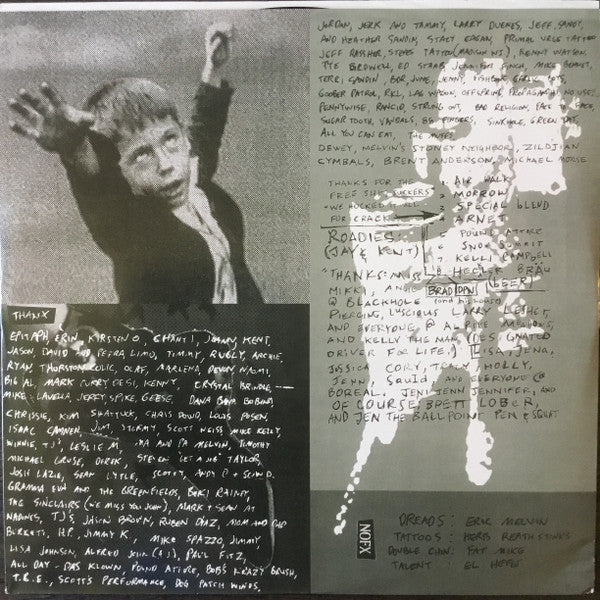 THANX
EPITAPH, ERIN, KIRSTEN O, CHANTI, JOHNNY, KENT,
JASON, DAVID AND PETRA LIMO, TIMMY, RUBLY, ARCHIE,
RYAN THORSTEN, OLAF, MARLENA, DEVIN, NAOMI,
BIG AL, MARK CURRY DESI, KENNY, CRYSTAL
MIKE LAVELLA, JERRY, SPIKE, GEESE, DANA
CHRISSIE, KIM SHATTUCK, CHRIS DOWD, LOUIS POSEN,
ISAAC CAMNER, JIM, STORMY, SCOTT WEISS, MIKE KELLY,
WINNIE, TJ'S, LESLIE M, MA AND PA MELVIN, TIMOTHY
MICHAEL CRUSE, DEREK, STEVEN TAYLOR,
JOSH LAZIE, SEAN LYTLE, SCOTTY, ANDY
GRAMMA EVA AND THE GREENFIELDS, BEKI RAINEY,
THE SINCLAIRS (WE MISS YOU JOHN), MARK & SEAN AT
TJ'S, JASON BROWN, RUBEN DIAZ, MOM AND DAD
BURKETT, H.P, JIMMY K, MIKE SPAZZO, JIMMY,
LISA JOHNSON, ALFRED JOHN (A J), PAUL FITZ,
ALL DAY - DAS KLOWN, POUND AFTURE, BOB'S KRAZY BRUSH,
T.R.E., SCOTT'S PERFORMANCE, DOG PATCH WINOS,
JORDAN, JERK AND TAMMY, LARRY DUENES, JEFF, SANDY,
AND HEATHER SANDIN, STACY EAGAN, PRIMAL URGE TATTOO
JEFF RASSHER, STEVES TATTOO (MADISON WI), KENNY WATSON,
PYE BIRDWELL, ED STAAB, JENNIFER FINCH, MIKE BENNET,
TERRI SANDIN, BOB, JUNE, JENNY, FISHBONE
GOOBER PATROL, RKL, LAG WAGON, OFFSPRING, PROPAGANDHI NO USE,
PENNYWISE, RANCID, STRUNG OUT, BAD RELIGION, FACE TO FACE,
SUGAR TOOTH, VANDALS, BIG FINGERS, SINKHOLE, GREEN DAY,
ALL YOU CAN EAT, THE MUFFS
DEWEY, MELVIN'S STONEY NEIGHBOR, ZILDJIAN
CYMBALS, BRENT ANDERSON, MICHAEL MORSE
THANKS FOR THE
FREE SHIT SUCKERS
"WE HOCKED IT ALL
FOR CRACK"
1 AIR WALK
2 MORROW
3 SPECIAL BLEND
4 ARNET
5 POUND AFTURE
6 SNOW SUMMIT
7 KELLI CAMPBELL
8 HECKLER BRÄU
ROADIES:
(JAY & KENT)
"THANKS: MISS
MIKKI, ANGIE BRAD DAN (EGGER)
@ BLACKHOLE (and his house)
PIERCING, LUSCIOUS LARRY LESHET,
AND EVERYONE @ MALONS,
AND KELLY THE MAN (DESIGNATED
DRIVER FOR LIFE,) LISA, JENA,
JESSICA CORY, HOLLY,
JENN, SAULD, AND EVERYONE @
BOREAL. JENI JENN JENNIFER, AND
OF COURSE BRETT LOBER,
AND JEN THE BALLPOINT PEN & SQUAT
NOFX
DREADS: ERIC MELVIN
TATTOOS: HERB REATHSTINKS
DOUBLE CHIN: FAT MIKE
TALENT: EL HEFE